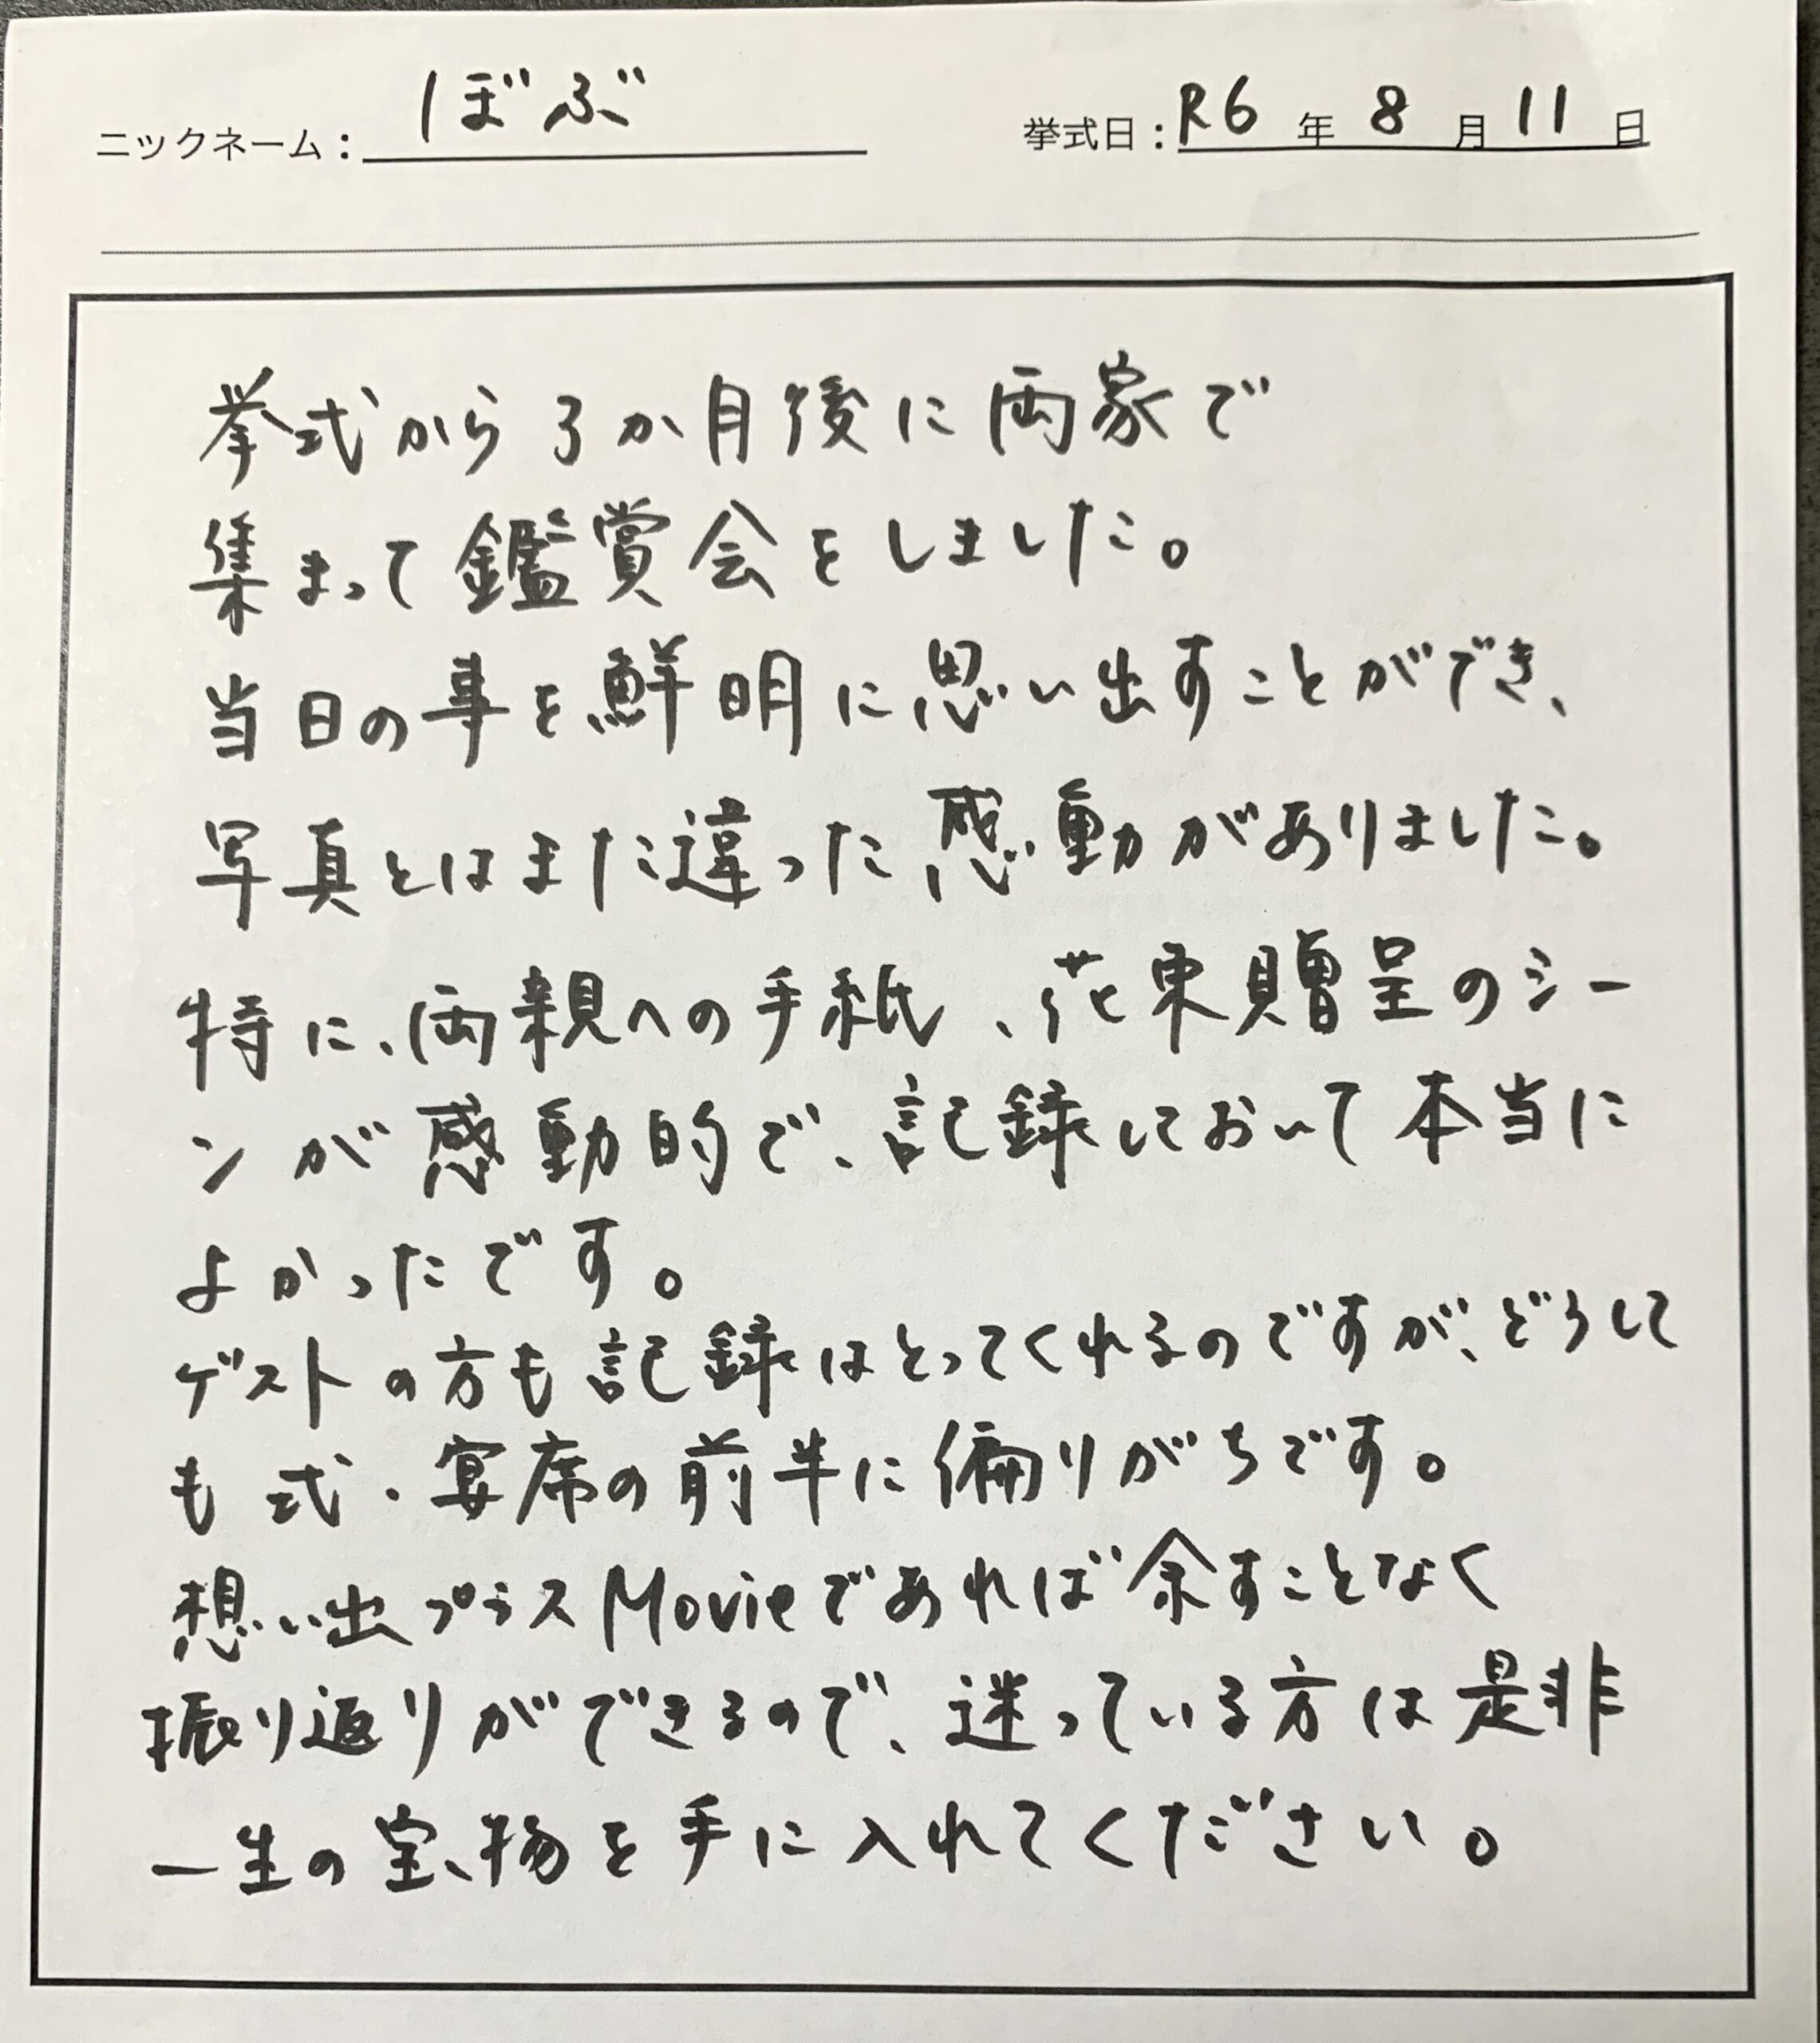 ニックネーム：ぼぶ 挙式日：R6年8月11日
挙式から3か月後に両家で
集まって鑑賞会をしました。
当日の事を鮮明に思い出すことができ、
写真とはまた違った感動がありました。
特に、両親への手紙、花束贈呈のシー
ンが感動的で、記録しておいて本当に
よかったです。
ゲストの方も記録はとってくれるのですが、どうして
も式・宴席の前半に偏りがちです。
想い出プラスMovieであれば余すことなく
振り返りができるので、迷っている方は是非
一生の宝物を手に入れてください。